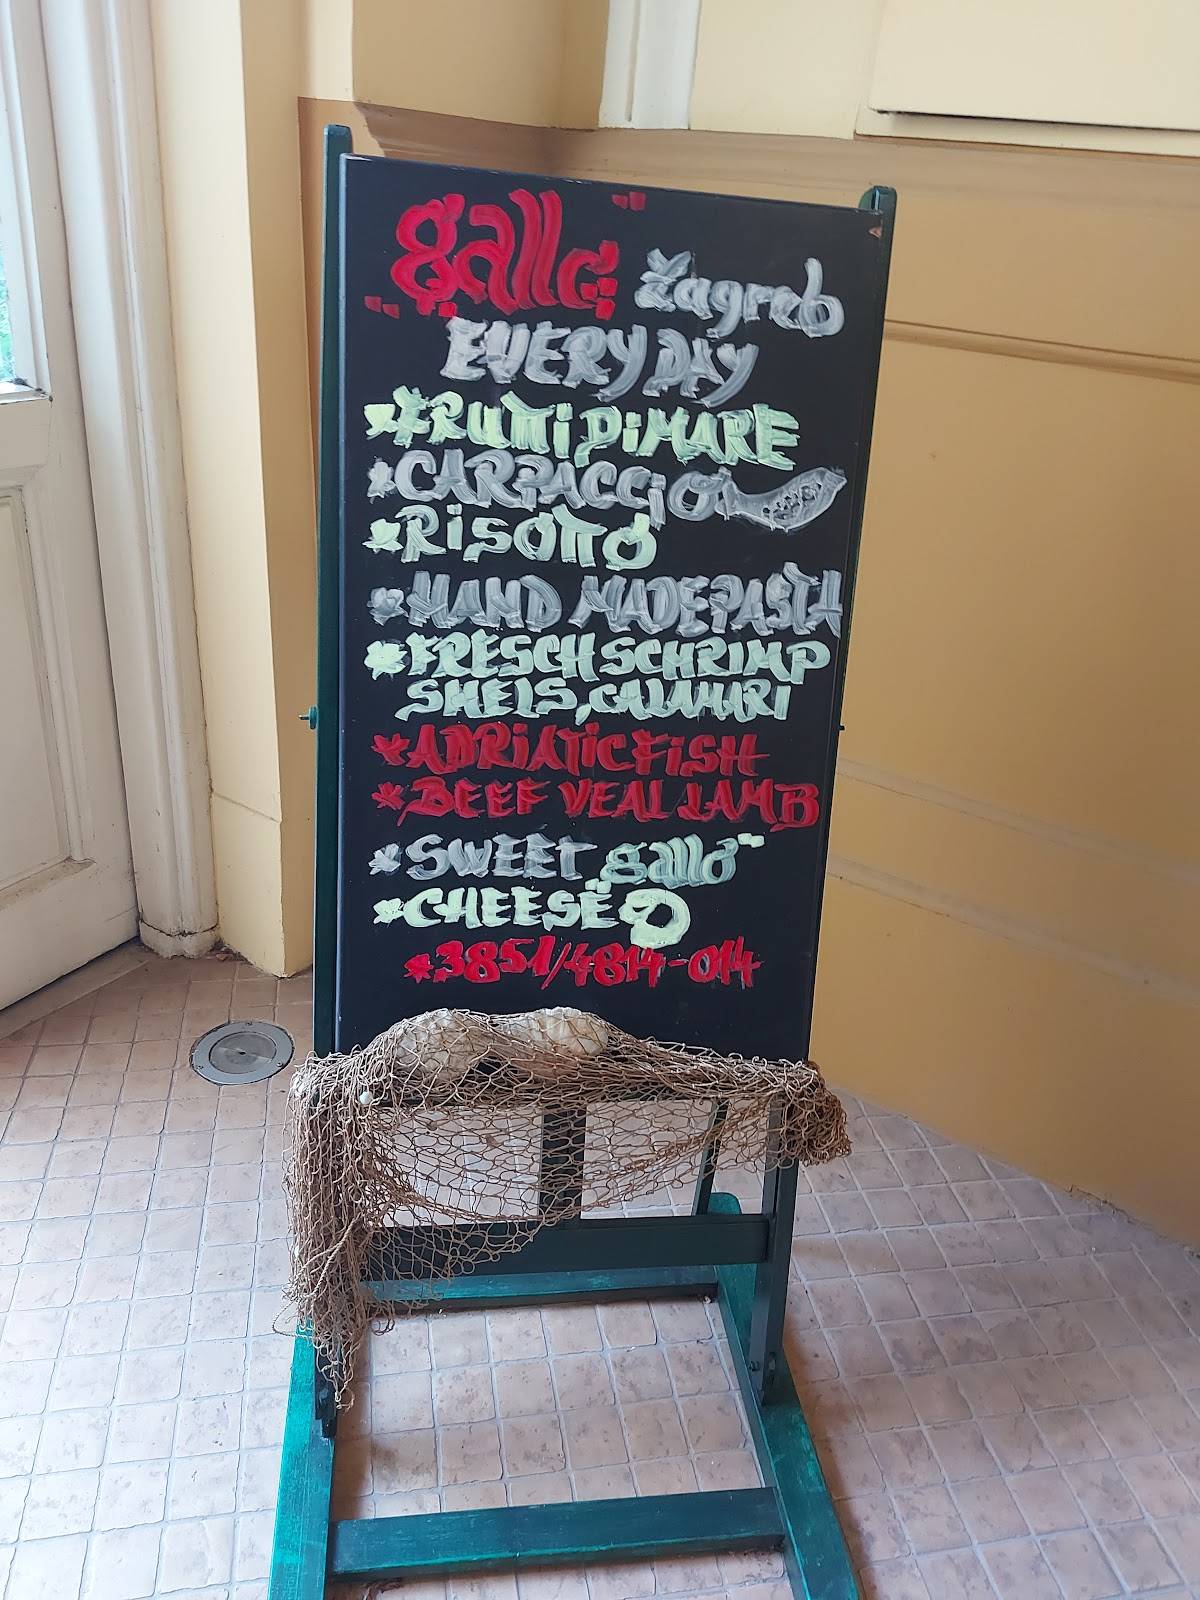 gallo Zagreb
EVERY DAY
*FRUTTI DI MARE
*CARPACCIO
*RISOTTO
*HAND MADE PASTA
*FRESCH SCHRIMP
SHELS, CALAMARI
*ADRIATIC FISH
*BEEF VEAL LAMB
*SWEET gallo
*CHEESE
*3851/4814-014